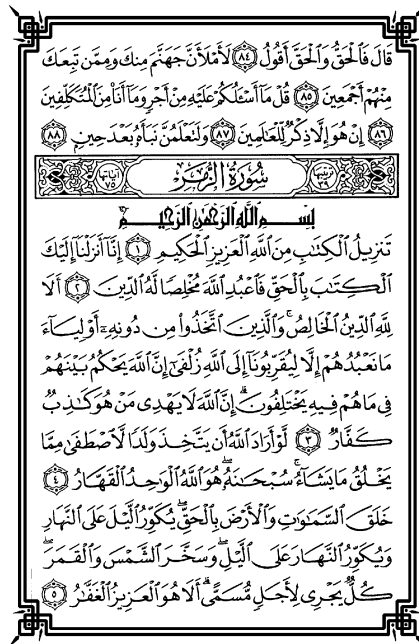 قَالَ فَالْحَقُّ وَالْحَقَّ أَقُولُ ﴿٨٤﴾ لَأَمْلَأَنَّ جَهَنَّمَ مِنكَ وَمِمَّن تَبِعَكَ
مِنْهُمْ أَجْمَعِينَ ﴿٨٥﴾ قُلْ مَا أَسْـَٔلُكُمْ عَلَيْهِ مِنْ أَجْرٍ وَمَا أَنَا۠ مِنَ الْمُتَكَلِّفِينَ
﴿٨٦﴾ إِنْ هُوَ إِلَّا ذِكْرٌ لِّلْعَالَمِينَ ﴿٨٧﴾ وَلَتَعْلَمُنَّ نَبَأَهُ بَعْدَ حِينٍ ﴿٨٨﴾
ترتيبها ٣٩ سُورَةُ الزُّمَرِ آياتها ٧٥
بِسْمِ اللَّهِ الرَّحْمَٰنِ الرَّحِيمِ
تَنزِيلُ الْكِتَابِ مِنَ اللَّهِ الْعَزِيزِ الْحَكِيمِ ﴿١﴾ إِنَّا أَنزَلْنَا إِلَيْكَ
الْكِتَابَ بِالْحَقِّ فَاعْبُدِ اللَّهَ مُخْلِصًا لَّهُ الدِّينَ ﴿٢﴾ أَلَا
لِلَّهِ الدِّينُ الْخَالِصُ ۚ وَالَّذِينَ اتَّخَذُوا مِن دُونِهِ أَوْلِيَاءَ
مَا نَعْبُدُهُمْ إِلَّا لِيُقَرِّبُونَا إِلَى اللَّهِ زُلْفَىٰ إِنَّ اللَّهَ يَحْكُمُ بَيْنَهُمْ
فِي مَا هُمْ فِيهِ يَخْتَلِفُونَ ۗ إِنَّ اللَّهَ لَا يَهْدِي مَنْ هُوَ كَاذِبٌ
كَفَّارٌ ﴿٣﴾ لَّوْ أَرَادَ اللَّهُ أَن يَتَّخِذَ وَلَدًا لَّاصْطَفَىٰ مِمَّا
يَخْلُقُ مَا يَشَاءُ ۚ سُبْحَانَهُ ۖ هُوَ اللَّهُ الْوَاحِدُ الْقَهَّارُ ﴿٤﴾
خَلَقَ السَّمَاوَاتِ وَالْأَرْضَ بِالْحَقِّ ۖ يُكَوِّرُ اللَّيْلَ عَلَى النَّهَارِ
وَيُكَوِّرُ النَّهَارَ عَلَى اللَّيْلِ ۖ وَسَخَّرَ الشَّمْسَ وَالْقَمَرَ ۖ
كُلٌّ يَجْرِي لِأَجَلٍ مُّسَمًّى ۗ أَلَا هُوَ الْعَزِيزُ الْغَفَّارُ ﴿٥﴾